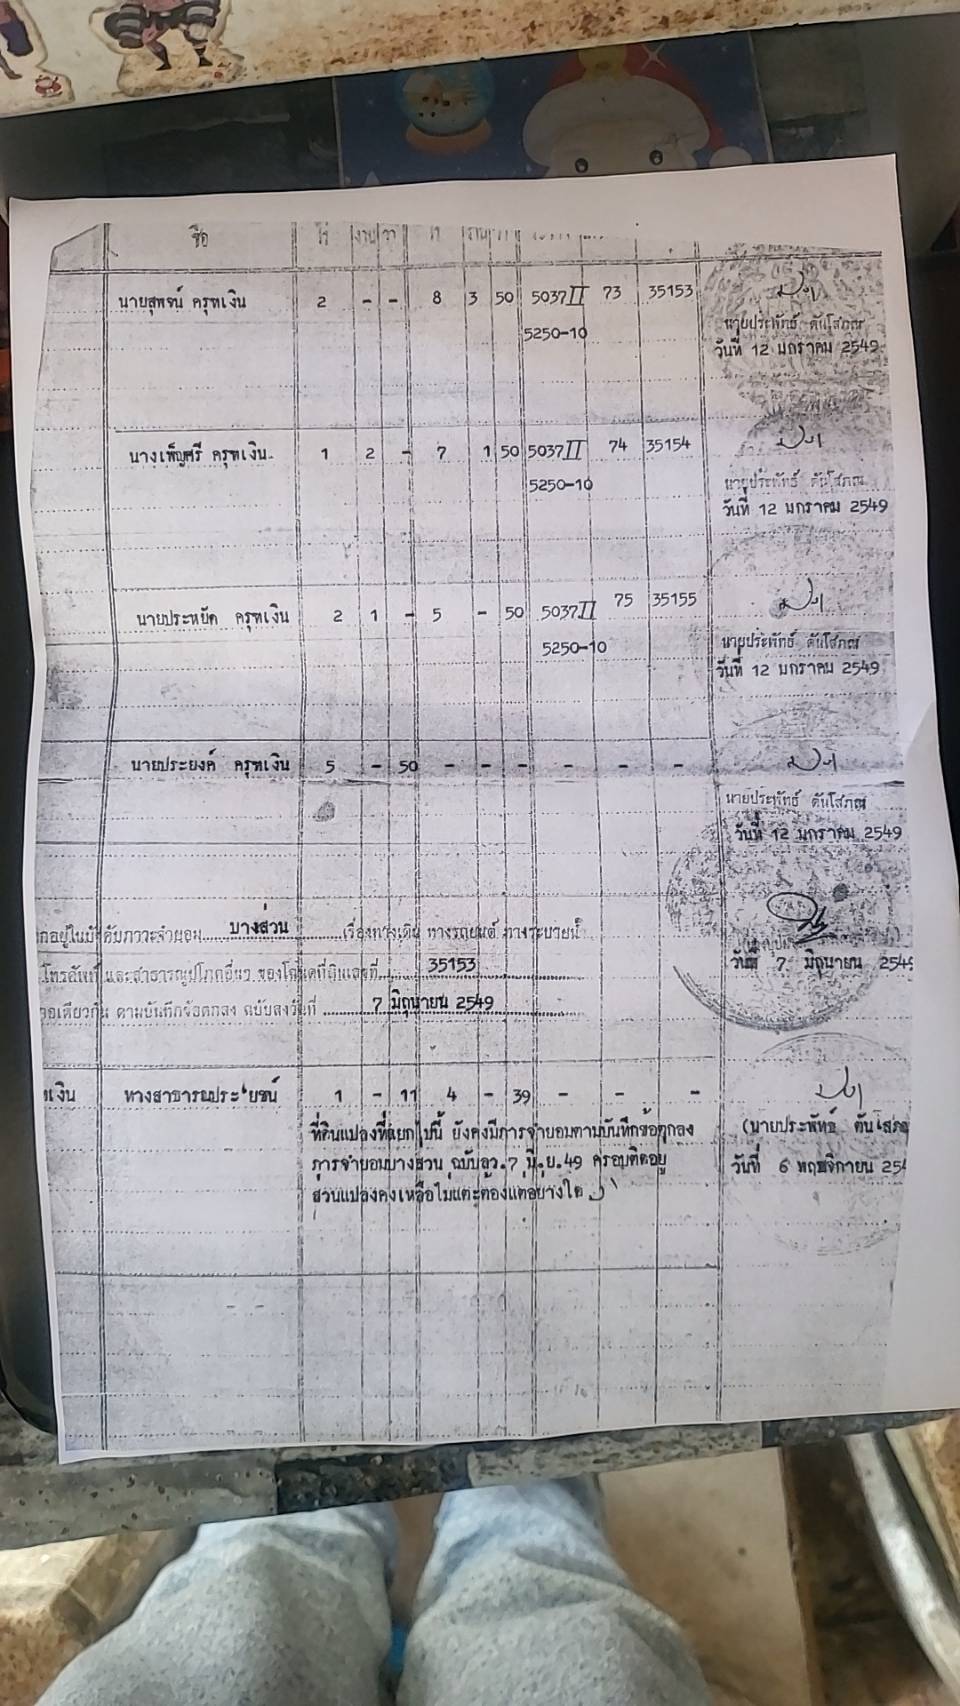 ชื่อ ไร่ งาน วา
นายสุพจน์ ครุฑเงิน 2 - - 8 3 50 5037 II 73 35153
5250-10
นายประพัทธ์ ตันโสภณ
วันที่ 12 มกราคม 2549
นางเพ็ญศรี ครุฑเงิน 1 2 - 7 1 50 5037 II 74 35154
5250-10
นายประพัทธ์ ตันโสภณ
วันที่ 12 มกราคม 2549
นายประหยัด ครุฑเงิน 2 1 - 5 - 50 5037 II 75 35155
5250-10
นายประพัทธ์ ตันโสภณ
วันที่ 12 มกราคม 2549
นายประยงค์ ครุฑเงิน 5 - 50 - - - - - -
นายประพัทธ์ ตันโสภณ
วันที่ 12 มกราคม 2549
ตกอยู่ในบังคับภาระจำยอม บางส่วน เรื่องทางเดิน ทางรถยนต์ ทางระบายน้ำ
โทรศัพท์ และสาธารณูปโภคอื่นๆ ของโฉนดที่ดินเลขที่ 35153
ตามบันทึกข้อตกลง ฉบับลงวันที่ 7 มิถุนายน 2549
วันที่ 7 มิถุนายน 2549
เงิน ทางสาธารณประโยชน์ 1 - 11 4 - 39 - - -
ที่ดินแปลงที่แยกไปนี้ ยังคงมีภาระจำยอมตามบันทึกข้อตกลง
ภาระจำยอมบางส่วน ฉบับลว.7 มิ.ย.49 ครอบติดอยู่
ส่วนแปลงคงเหลือไม่แตะต้องแต่อย่างใด
(นายประพัทธ์ ตันโสภ
วันที่ 6 พฤศจิกายน 25